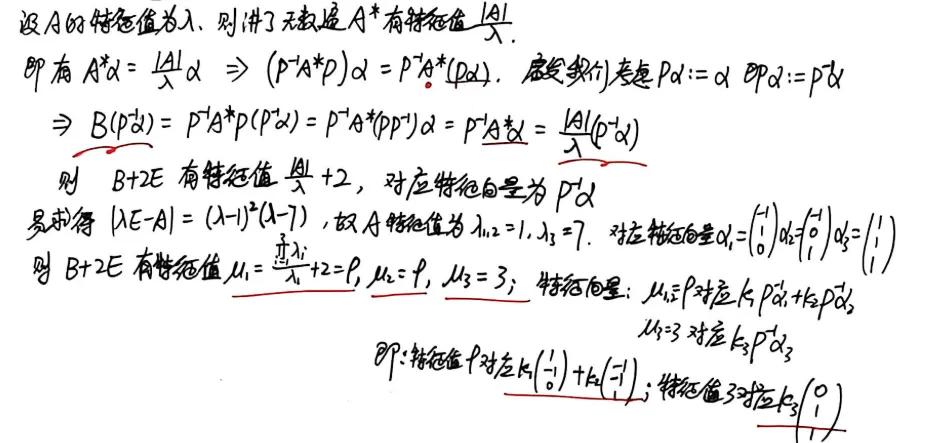 设A的特征值为λ. 则讲了无数遍A*有特征值|A|/λ.
即有 A*α = |A|/λ α ⇒ (P⁻¹A*P)α = P⁻¹A*(Pα). 启发我们考虑Pα:=α 即α:=P⁻¹α
⇒ B(P⁻¹α) = P⁻¹A*P(P⁻¹α) = P⁻¹A*(PP⁻¹)α = P⁻¹A*α = |A|/λ (P⁻¹α)
则 B+2E 有特征值 |A|/λ +2, 对应特征向量为P⁻¹α
易求得 |λE-A| = (λ-1)²(λ-7), 故A特征值为λ₁,₂=1, λ₃=7. 对应特征向量α₁=(-1 1 0) α₂=(-1 0 1) α₃=(1 1 1)
则 B+2E 有特征值 μ₁ = ∏λᵢ/λ₁ +2=9, μ₂=9, μ₃=3; 特征向量: μ₁,₂=9对应k₁P⁻¹α₁+k₂P⁻¹α₂
μ₃=3 对应k₃P⁻¹α₃
即:特征值9对应k₁(1 -1 0)+k₂(-1 -1 1); 特征值3对应k₃(0 1 1)